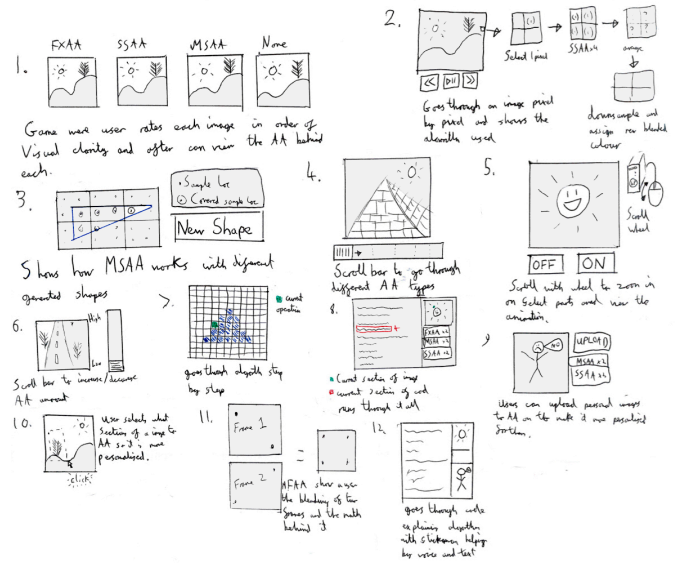 1.
FXAA SSAA MSAA None
Game were user rates each image in order of
Visual clarity and after can view the AA behind
each.
2.
Select 1 pixel
SSAAx4
average
Goes through an image pixel
by pixel and shows the
algorithm used
downsample and
assign new blended
colour
3.
• Sample loc
Covered sample loc
New Shape
Shows how MSAA works with different
generated shapes
4.
Scroll bar to go through
different AA types
5.
Scroll
wheel
OFF ON
Scroll with wheel to zoom in
on select parts and view the
animation.
6.
High
Low
Scroll bar to increase/decrease
AA amount
7.
current
operation
goes through step
by step
8.
FXAAx2
MSAAx2
SSAAx4
Current section of image
current section of code
runs through it all
9
UPLOAD
MSAAx2
SSAAx4
Users can upload personal images
to AA on to make it more personalised
for them.
10.
User selects what
section of a image to
AA so it is more
personalised.
click
11.
Frame 1
Frame 2
=
the blending of two
frames and the math
behind it
12.
goes through code
explains algorithm
with stickman helping
by voice and text